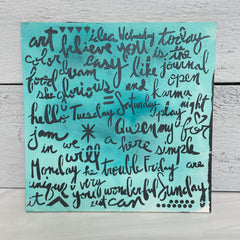 art idea Wednesday today
believe you is the
color easy like journal
food dream open
she glorious and Karma
hello Tuesday = Saturday play night
jam Queen my for
in we a here simple
will
Monday he trouble Friday are
unique very
it you wonderful Sunday
eat can